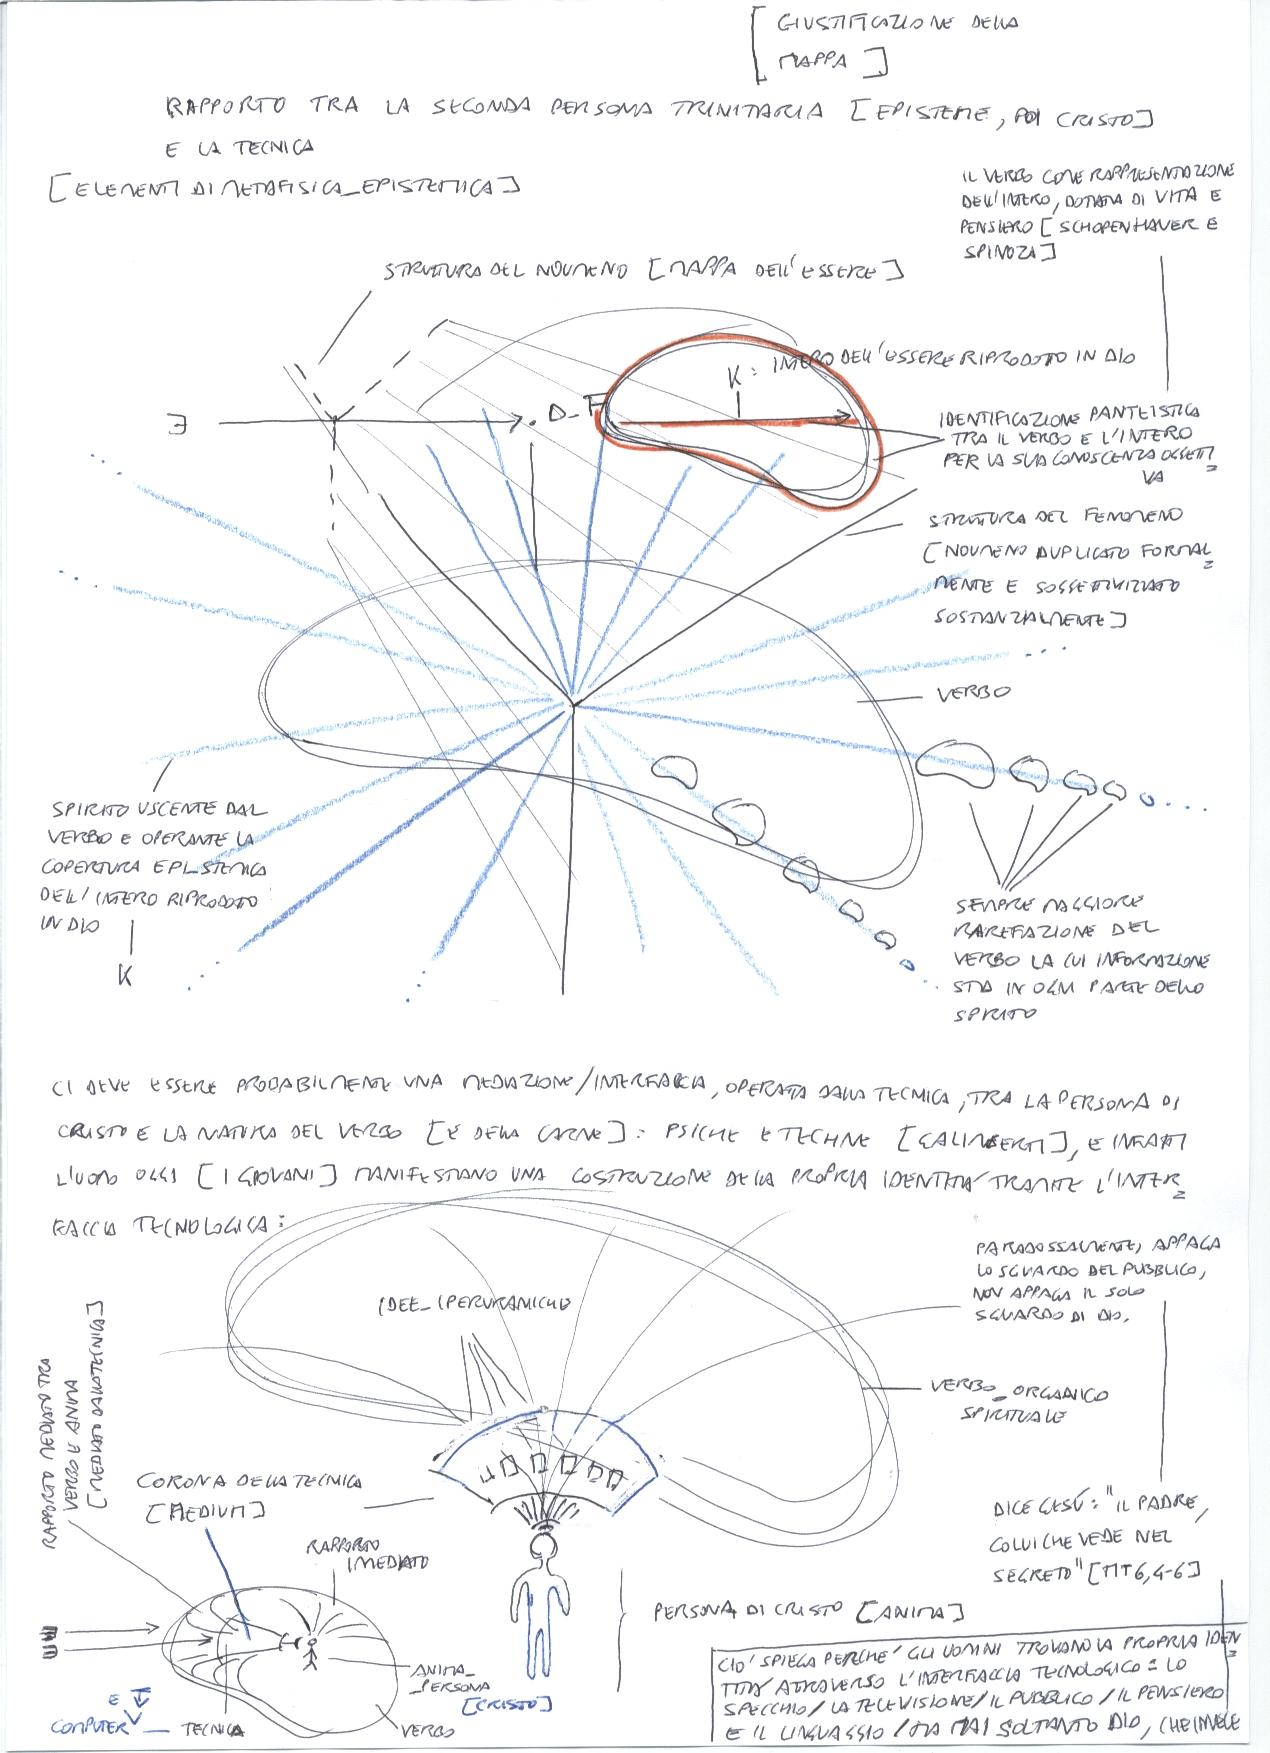 [ GIUSTIFICAZIONE DELLA
MAPPA ]
RAPPORTO TRA LA SECONDA PERSONA TRINITARIA [ EPISTEME, POI CRISTO ]
E LA TECNICA
[ ELEMENTI DI METAFISICA_EPISTEMICA ]
IL VERBO COME RAPPRESENTAZIONE
DELL'INTERO, DOTATA DI VITA E
PENSIERO [ SCHOPENHAUER E
SPINOZA ]
STRUTTURA DEL NOUMENO [ MAPPA DELL'ESSERE ]
K : INTERO DELL'ESSERE RIPRODOTTO IN DIO
IDENTIFICAZIONE PANTEISTICA
TRA IL VERBO E L'INTERO
PER LA SUA CONOSCENZA OGGETTI=
VA
STRUTTURA DEL FENOMENO
[ NOUMENO DUPLICATO FORMAL=
MENTE E SOGGETTIVIZZATO
SOSTANZIALMENTE ]
VERBO
SPIRITO USCENTE DAL
VERBO E OPERANTE LA
COPERTURA EPISTEMICA
DELL'INTERO RIPRODOTTO
IN DIO
K
SEMPRE MAGGIORE
RAREFAZIONE DEL
VERBO LA CUI INFORMAZIONE
STA IN OGNI PARTE DELLO
SPIRITO
CI DEVE ESSERE PROBABILMENTE UNA MEDIAZIONE/INTERFACCIA, OPERATA DALLA TECNICA, TRA LA PERSONA DI
CRISTO E LA NATURA DEL VERBO [ E DELLA CARNE ] : PSICHE E TECHNE [ GALIMBERTI ], E INFATTI
L'UOMO OGGI [ I GIOVANI ] MANIFESTANO UNA COSTRUZIONE DELLA PROPRIA IDENTITA' TRAMITE L'INTER=
FACCIA TECNOLOGICA :
PARADOSSALMENTE, APPAGA
LO SGUARDO DEL PUBBLICO,
NON APPAGA IL SOLO
SGUARDO DI DIO.
IDEE_IPERURANICHE
VERBO_ORGANICO
SPIRITUALE
RAPPORTO MEDIATO TRA
VERBO E ANIMA
[ MEDIATO DALLA TECNICA ]
CORONA DELLA TECNICA
[ MEDIUM ]
RAPPORTO
IMEDIATO
DICE GESÙ : "IL PADRE,
COLUI CHE VEDE NEL
SEGRETO" [ MT 6,4-6 ]
PERSONA DI CRISTO [ ANIMA ]
ANIMA_
PERSONA
[ CRISTO ]
E TV
COMPUTER
TECNICA
VERBO
CIO' SPIEGA PERCHE' GLI UOMINI TROVANO LA PROPRIA IDEN=
TITA' ATTRAVERSO L'INTERFACCIA TECNOLOGICO = LO
SPECCHIO / LA TELEVISIONE / IL PUBBLICO / IL PENSIERO
E IL LINGUAGGIO / MA MAI SOLTANTO DIO, CHE INVECE